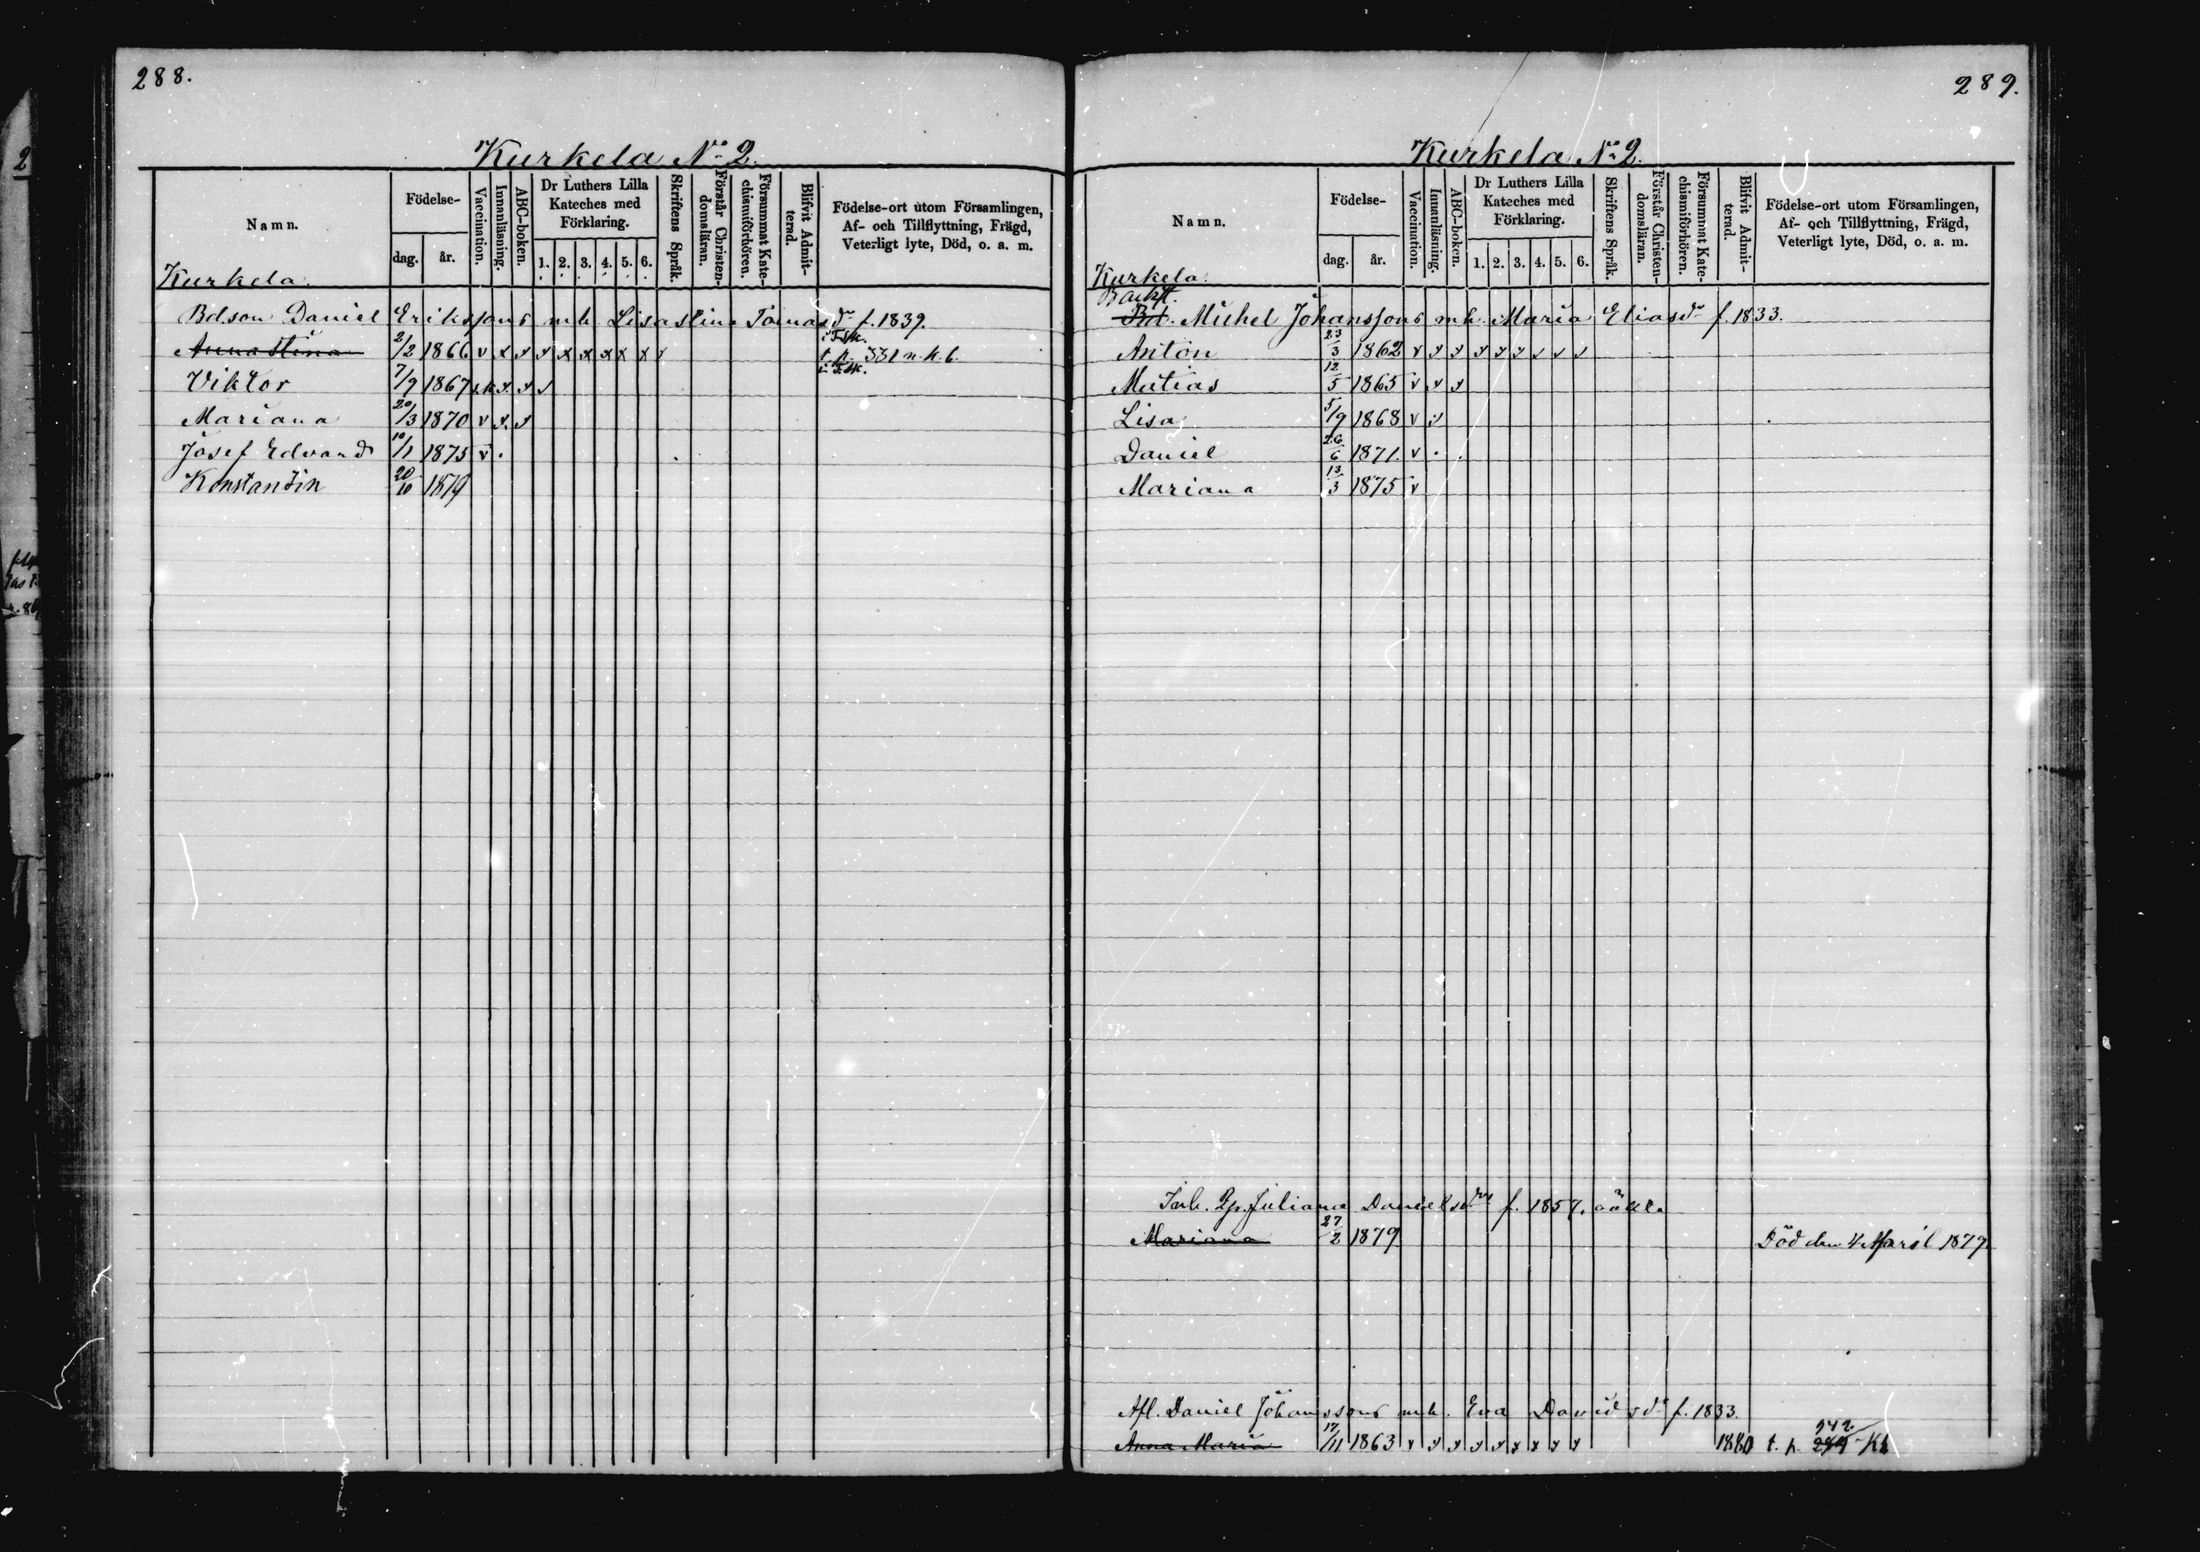 288.
Kurkela No 2.
Namn. Födelse- dag. år. Vaccination. Innanläsning. ABC-boken. Dr Luthers Lilla Kateches med Förklaring. 1. 2. 3. 4. 5. 6. Skriftens Språk. Förstår Christendomsläran. Försummat Katechismiförhören. Blifvit Admitterad. Födelse-ort utom Församlingen, Af- och Tillflyttning, Frägd, Veterligt lyte, Död, o. a. m.
Kurkela.
Bdson Daniel Erikssons mh Lisastina Tomasdr f. 1839.
Anna Stina 2/2 1866 v x x x x x x x x x t. p. 331 n. k. b.
Viktor 7/9 1867
Mariana 20/3 1870 v
Josef Edvard 10/1 1875 v
Konstantin 20/10 1879
289.
Kurkela No 2.
Namn. Födelse- dag. år. Vaccination. Innanläsning. ABC-boken. Dr Luthers Lilla Kateches med Förklaring. 1. 2. 3. 4. 5. 6. Skriftens Språk. Förstår Christendomsläran. Försummat Katechismiförhören. Blifvit Admitterad. Födelse-ort utom Församlingen, Af- och Tillflyttning, Frägd, Veterligt lyte, Död, o. a. m.
Kurkela.
Backst.
Bd. Mickel Johanssons mh. Maria Eliasdr f. 1833.
Anton 23/3 1862 v
Matias 12/5 1865 v
Lisa 5/9 1868 v
Daniel 26/6 1871. v
Mariana 13/3 1875 v
Inh. Juliana Danielsdrs f. 1857. oäkta
Mariana 27/2 1879 Död den 4 April 1879
Afl. Daniel Johanssons mh. Eva Davidsdr f. 1833.
Anna Maria 17/11 1863 v 1880 t. p. 242